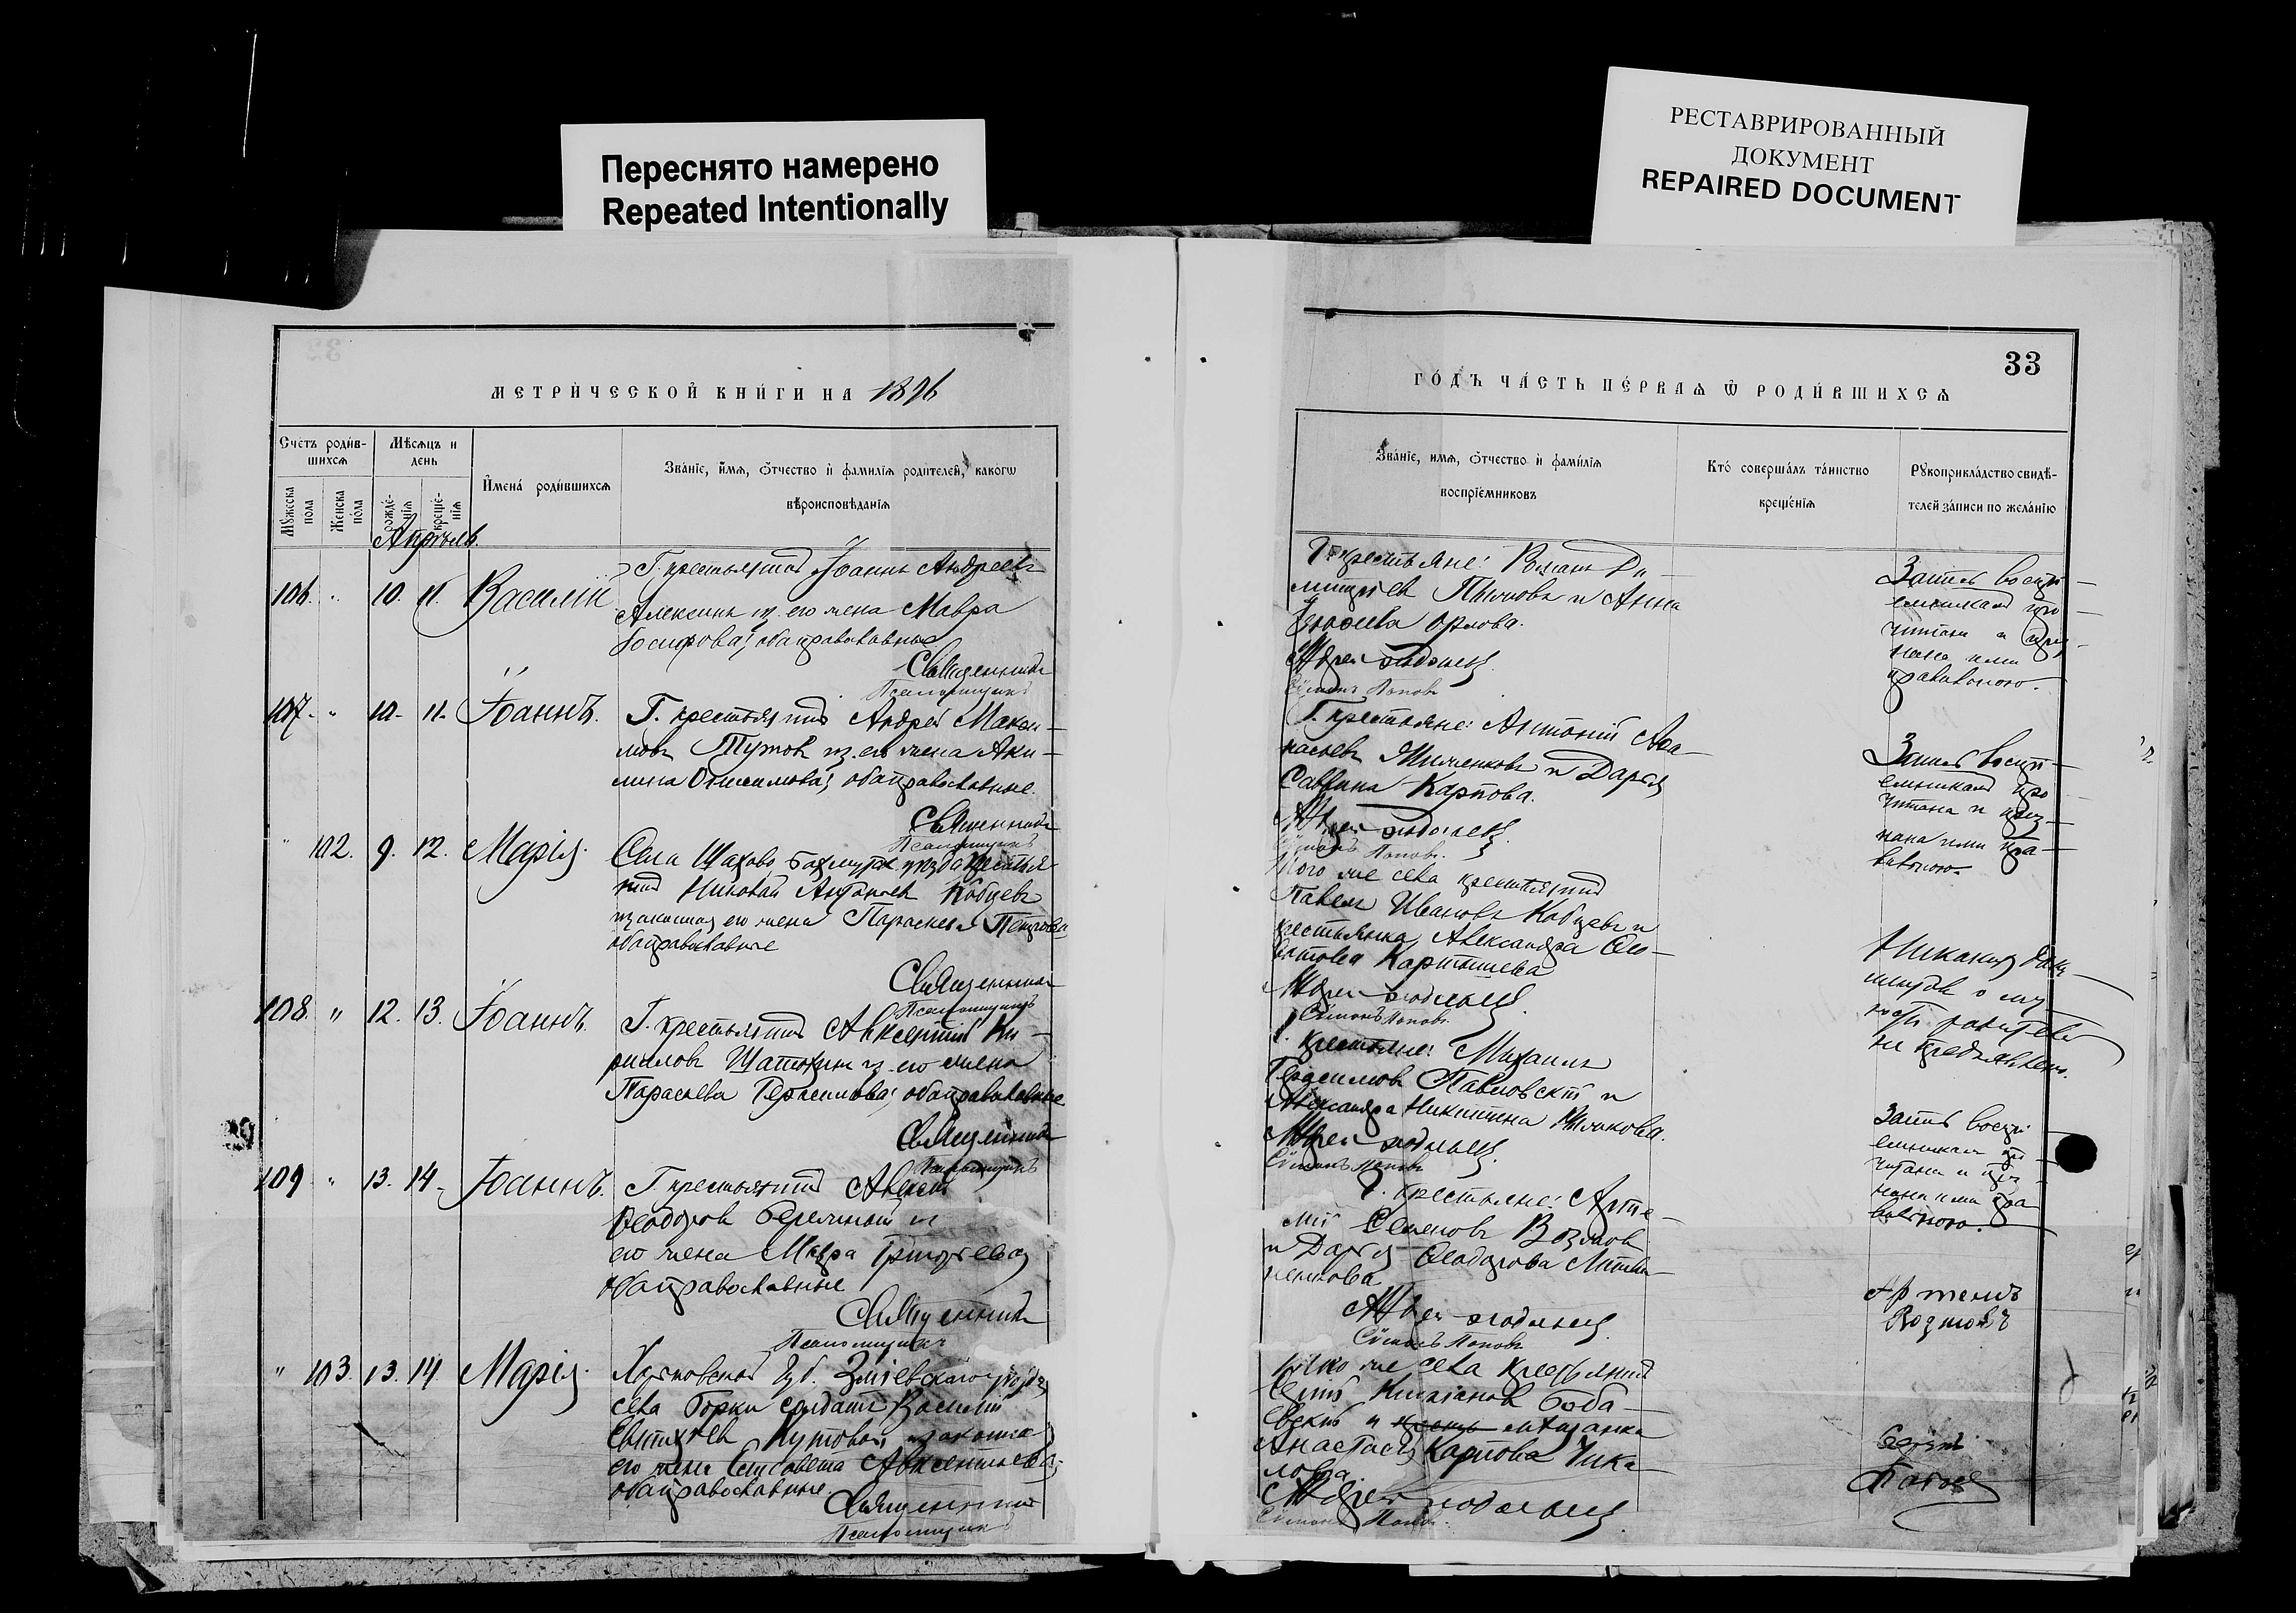 Переснято намерено
Repeated Intentionally
РЕСТАВРИРОВАННЫЙ
ДОКУМЕНТ
REPAIRED DOCUMENT
МЕТРИ́ЧЕСКОЙ КНИ́ГИ НА 1896
Счетъ роди́в-
шихсѧ
Мѣсѧцъ и
день
Мꙋжеска
пола
Женска
пола
рожде́-
нїѧ
креще́-
нїѧ
Имена́ роди́вшихсѧ
Зва́нїе, и́мѧ, ѻ҆́тчество и҆ фами́лїѧ роди́телей, како́гѡ
вѣроисповѣ́данїѧ
Апрѣль.
106. " 10. 11. Василій
Г. крестьянинъ Іоаннъ Андреевъ
Алексинъ и з. его жена Мавра
Іосифова; оба православные
Священникъ
Псаломщикъ
107. " 10. 11. Іоаннъ.
Г. крестьянинъ Андрей Макси-
мовъ Тутовъ и з. его жена Аки-
лина Онисимова; оба православные.
Священникъ
Псаломщикъ
" 102. 9. 12. Марія.
Села Шахово Бахмутск. уѣзда крестья-
нинъ Николай Антоновъ Кобцевъ
и законная его жена Параскева Петрова
оба православные
Священникъ
Псаломщикъ
108. " 12. 13. Іоаннъ.
Г. крестьянинъ Авксентій Ки-
риловъ Шатохинъ и з. его жена
Параскева Герасимова; оба православные
Священникъ
Псаломщикъ
109. " 13. 14. Іоаннъ.
Г. крестьянинъ Алексѣй
Ѳеодоровъ Бережный и
его жена Мавра Григорьева
оба православные
Священникъ
Псаломщикъ
" 103. 13. 14. Марія.
Харьковской губ. Зміевскаго уѣзда
села Борки солдатъ Василій
Евтихіевъ Кутовой и законная
его жена Елисавета Авксентьева;
оба православные.
Священникъ
Псаломщикъ
33
ГО́ДЪ ЧА́СТЬ ПЕ́РВАѦ Ѿ РОДИ́ВШИХСѦ
Зва́нїе, имѧ, ѻ҆́тчество и҆ фами́лїѧ
воспрїе́мниковъ
Кто́ соверша́лъ та́инство
креще́нїѧ
Рꙋкоприкла́дство свидѣ́-
телей за́писи по жела́нїю
Г. крестьяне: Романъ Ди-
митріевъ и Анна
Орлова.
Андрей
Сѵмеонъ Поповъ
Запись воспрі-
емникамъ про-
читана и приз-
нана ими
правильною.
Г. крестьяне: Антоній Аѳа-
насьевъ и Дарія
Саввина Карпова.
Андрей
Сѵмеонъ Поповъ.
Запись воспрі-
емникамъ про-
читана и приз-
нана ими пра-
вильною.
Того же села крестьянинъ
Павелъ Ивановъ Кобцевъ и
крестьянка Александра
Андрей
Сѵмеонъ Поповъ.
Никакихъ доку-
ментовъ о
не предъявлено.
Г. крестьяне: Михаилъ
Герасимовъ Павловскій и
Александра Никитина
Андрей
Сѵмеонъ Поповъ
Запись воспрі-
емникамъ про-
читана и приз-
нана ими пра-
вильною.
Г. крестьяне: Арте-
мій Семеновъ Возмовъ
и Дарія Ѳеодорова
Андрей
Сѵмеонъ Поповъ
Артемъ
Того же села крестьянинъ
и мѣщанка
Анастасія Карпова Чика-
лова.
Андрей
Сѵмеонъ Поповъ.